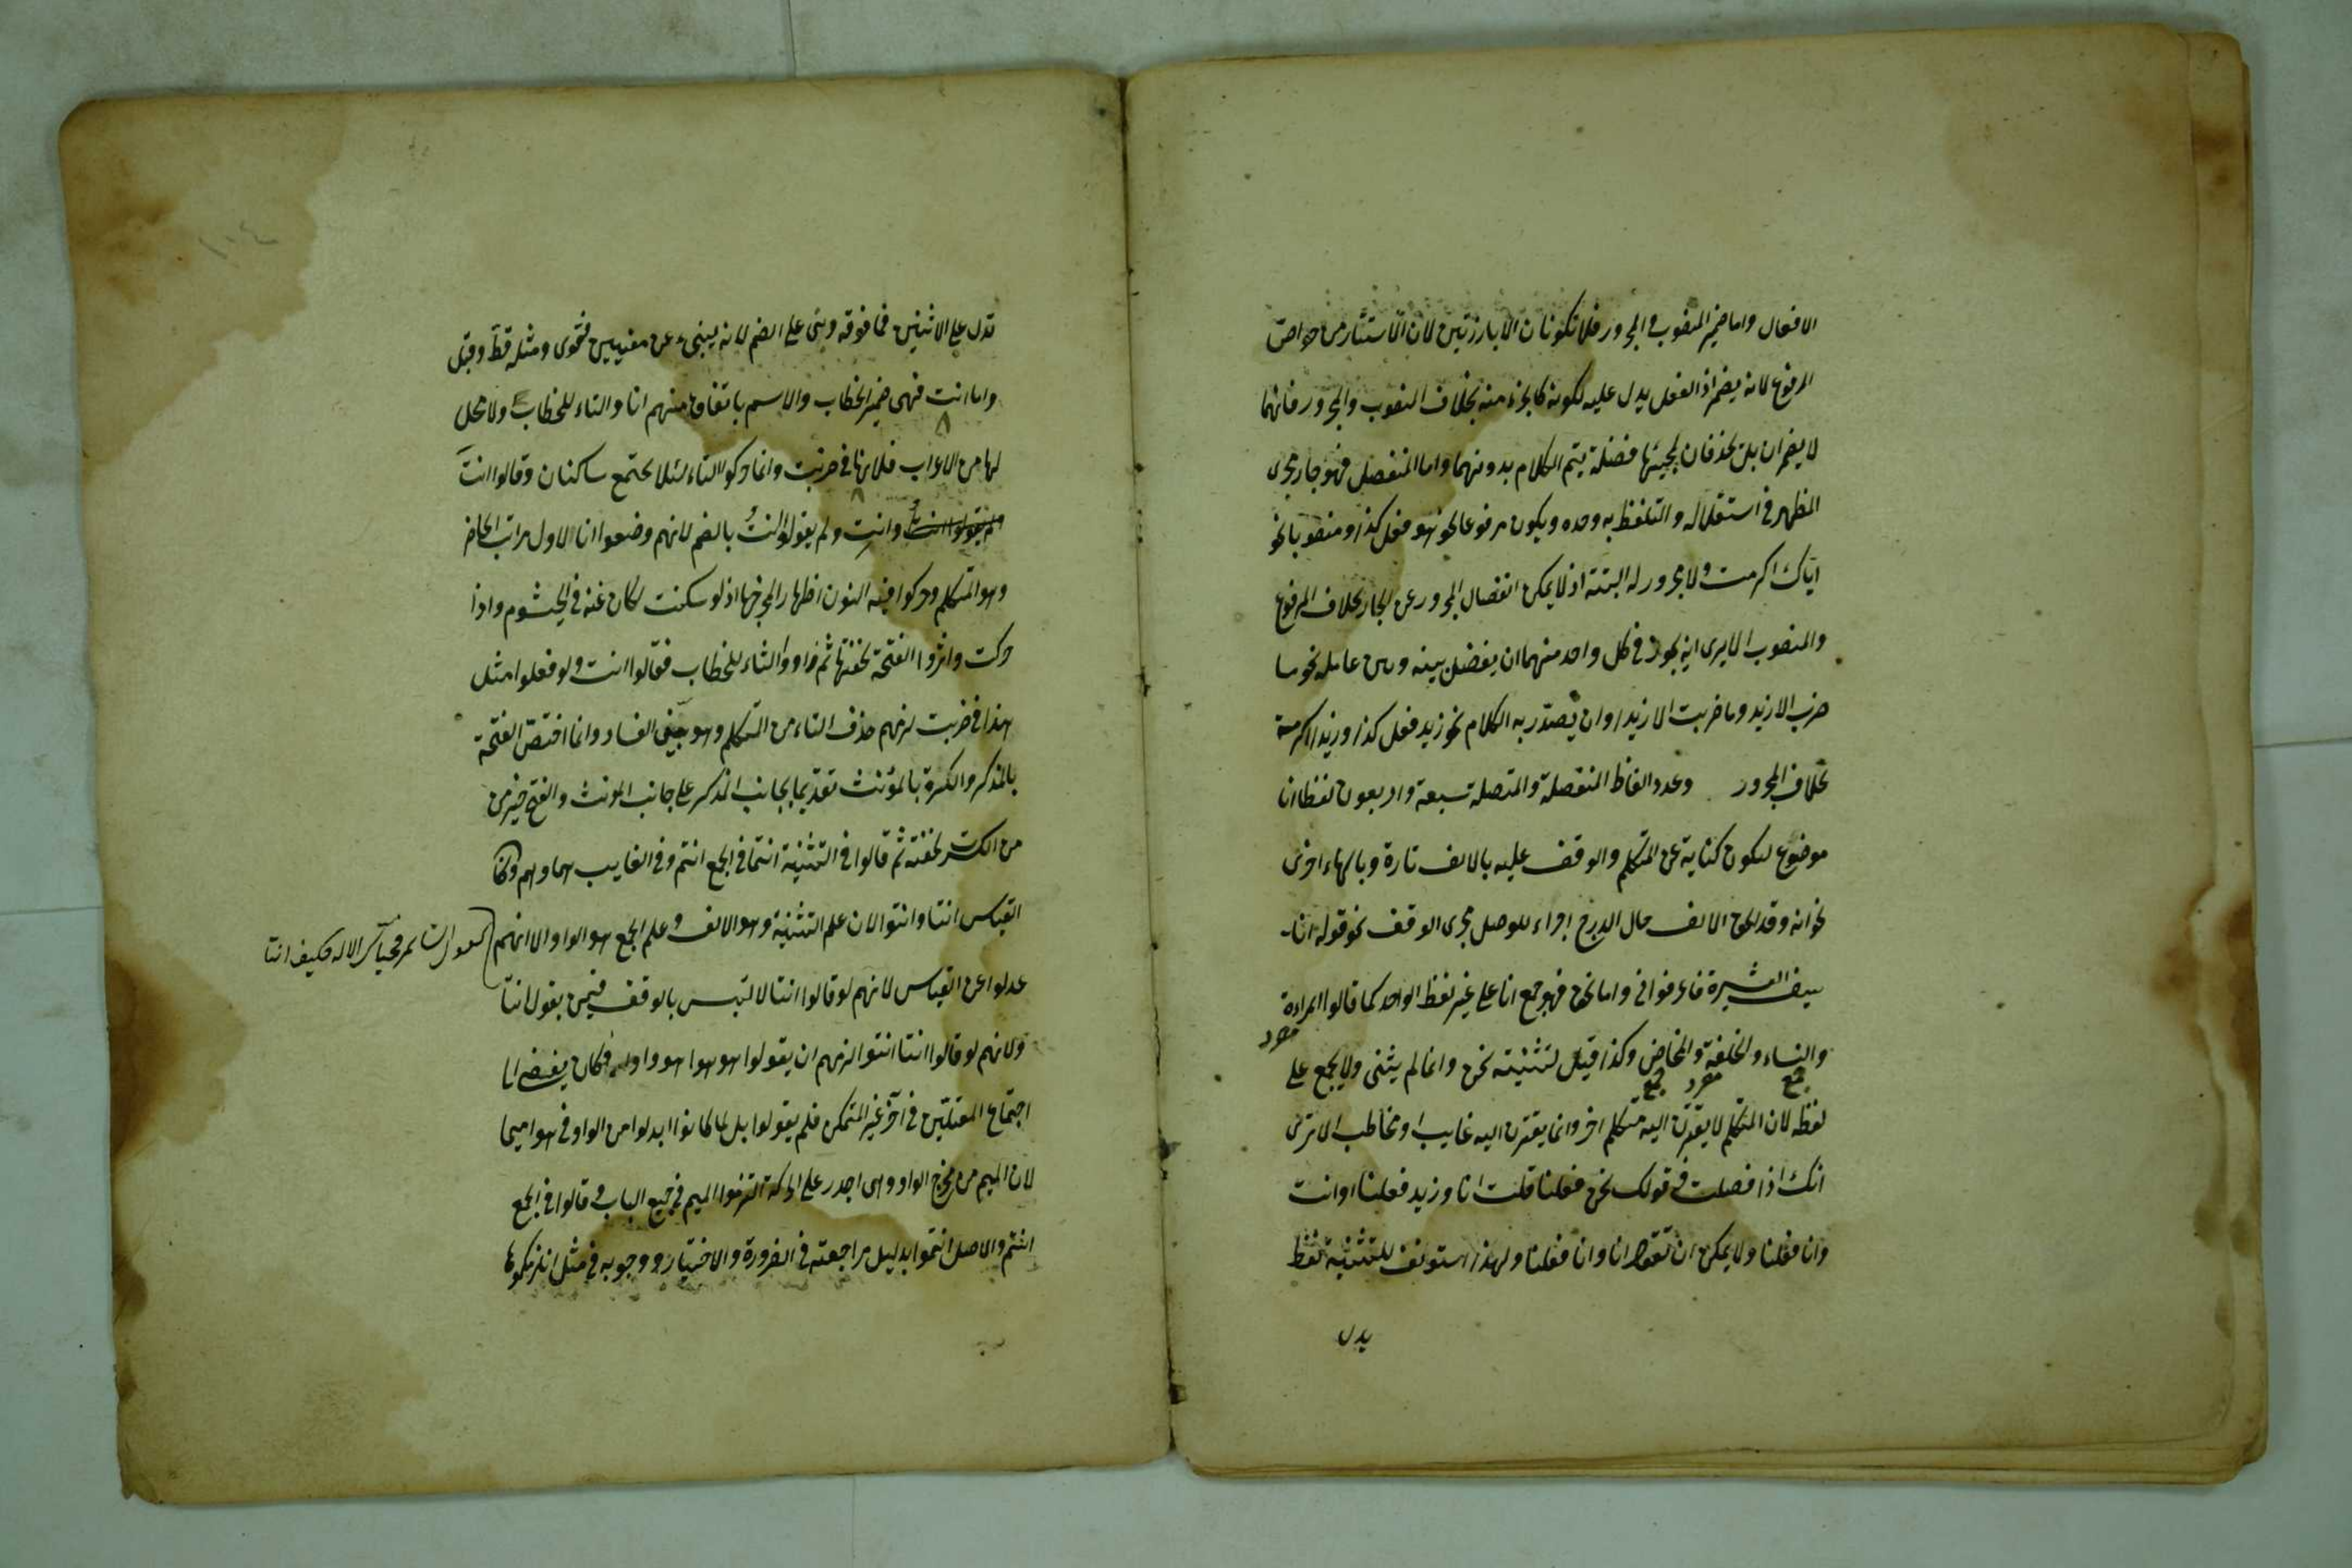 الافعال واما ضمير المنصوب والمجرور فلا تكونان الا بارزتين لان الاستتار من خواص
المرفوع لانه يضمر اذ الفعل يدل عليه لكونه كالجزء منه بخلاف المنصوب والمجرور فانهما
لا يضمران بل يحذفان لمجيئها فضلة يتم الكلام بدونهما واما المنفصل فهو جار مجرى
المظهر في استقلاله والتلفظ به وحده ويكون مرفوعا نحو هو فعل كذا ومنصوبا نحو
اياك اكرمت ولا مجرور له البتة اذ لا يمكن انفصال المجرور عن الجار بخلاف المرفوع
والمنصوب الا يرى انه يجوز في كل واحد منهما ان يفصل بينه وبين عامله نحو ما
ضرب الا زيد وما ضربت الا زيدا وان يصدر به الكلام نحو زيد فعل كذا وزيدا اكرمته
بخلاف المجرور وعدد الفاظ المنفصلة والمتصلة سبعة واربعون لفظا انا
موضوع لتكون كناية عن المتكلم والوقف عليه بالالف تارة وبالهاء اخرى
نحو انه وقد الحق الالف حال الدرج اجراء للوصل مجرى الوقف نحو قوله انا
سيف العشيرة فاعرفوني واما نحن فهو جمع انا على غير لفظ الواحد كما قالوا المراءة
مفرد
والنساء والخلفة والمخاض وكذا قيل لتثنيته نحن وانما لم يثنى ولا يجمع على
جمع مفرد جمع
لفظه لان المتكلم لا يقترن اليه متكلم اخر وانما يقترن اليه غايب او مخاطب الا ترى
انك اذا فصلت في قولك نحن فعلنا قلت انا وزيد فعلنا او انت
وانا فعلنا ولا يمكن ان تقول انا وانا فعلنا ولهذا استونف للتثنية لفظ
يدل
تدل على الاثنين فما فوقه وبنى على الضم لانه ينبىء عن معنيين فتقوى ومثله قط وقبل
واما انت فهى ضمير الخطاب والاسم باتفاق منهم انا والتاء للخطاب ولا محل
لها من الاعراب فلانها في ضربت وانما حركوا التاء لئلا يجتمع ساكنان وقالوا انت
وانت ولم يقولوا انت بالضم لانهم وضعوا انا لاول مراتب الحاضر
وهو المتكلم وحركوا فيه النون اظهارا لمخرجها اذ لو سكنت لكان غنه في الخيشوم واذا
حركت واثروا الفتحة لخفتها ثم زادوا التاء للخطاب فقالوا انت ولو فعلوا مثل
هذا في ضربت لزمهم حذف التاء من المتكلم وهو بين الفساد وانما اختص الفتحة
بالمذكر والكسرة بالمؤنث تقديما لجانب المذكر على جانب المونث والفتح خير من
من الكسر لخفته ثم قالوا في التثنية انتما في الجمع انتم وفي الغايب هما وهم وكان
القياس انتا وانتوا لان علم التثنية وهو الالف وعلم الجمع هو الواو الا انهم
عدلوا عن القياس لانهم لو قالوا انتا لالتبس بالوقف فيمن يقول انتا
ولانهم لو قالوا انتا انتوا لزمهم ان يقولوا هو هوا هووا فكان يفضي الى
اجتماع المعتلين في آخر غير المتمكن فلم يقولوا بل ابدلوا من الواو في هوا ميما
لان الميم من مخرج الواو وهى اجدر على الحركة التزموا الميم في جميع الباب وقالوا في الجمع
انتم والاصل انتموا بدليل مراجعته في الضرورة والاختيار ووجوبه في مثل انلزمكموها